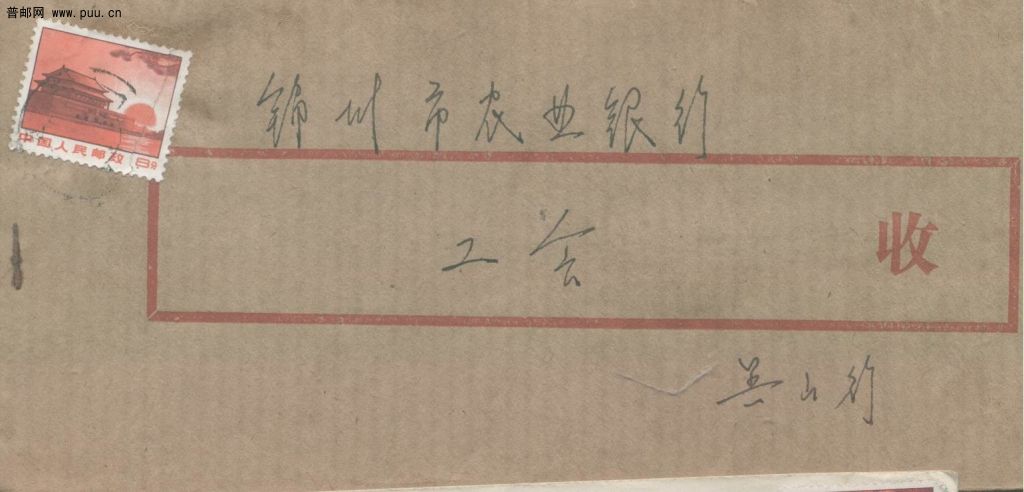 普邮网 www.puu.cn
中国人民邮政 8分
锦州市农业银行
工会
收
黑山行